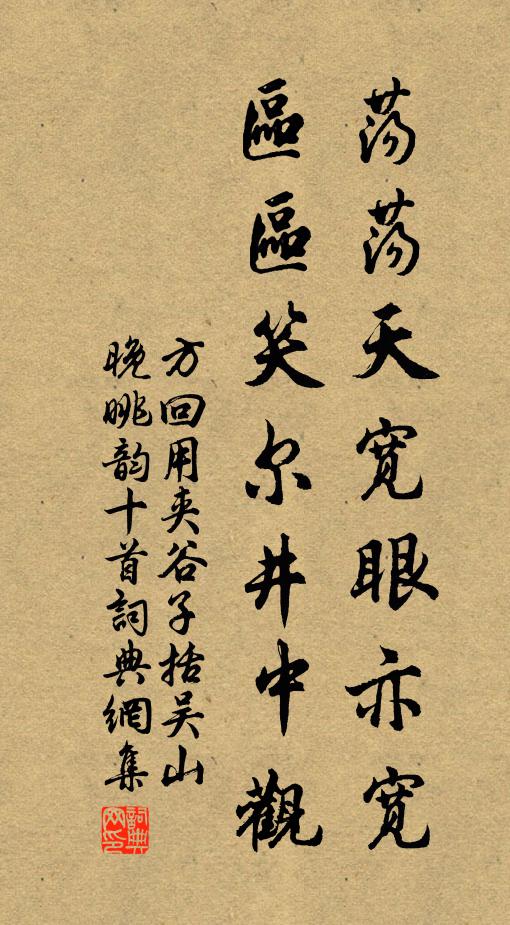 荡荡天宽眼亦宽
區區笑尔井中觀
方回用夹谷子括吴山
晚眺韵十首詞典網集
詞典網印